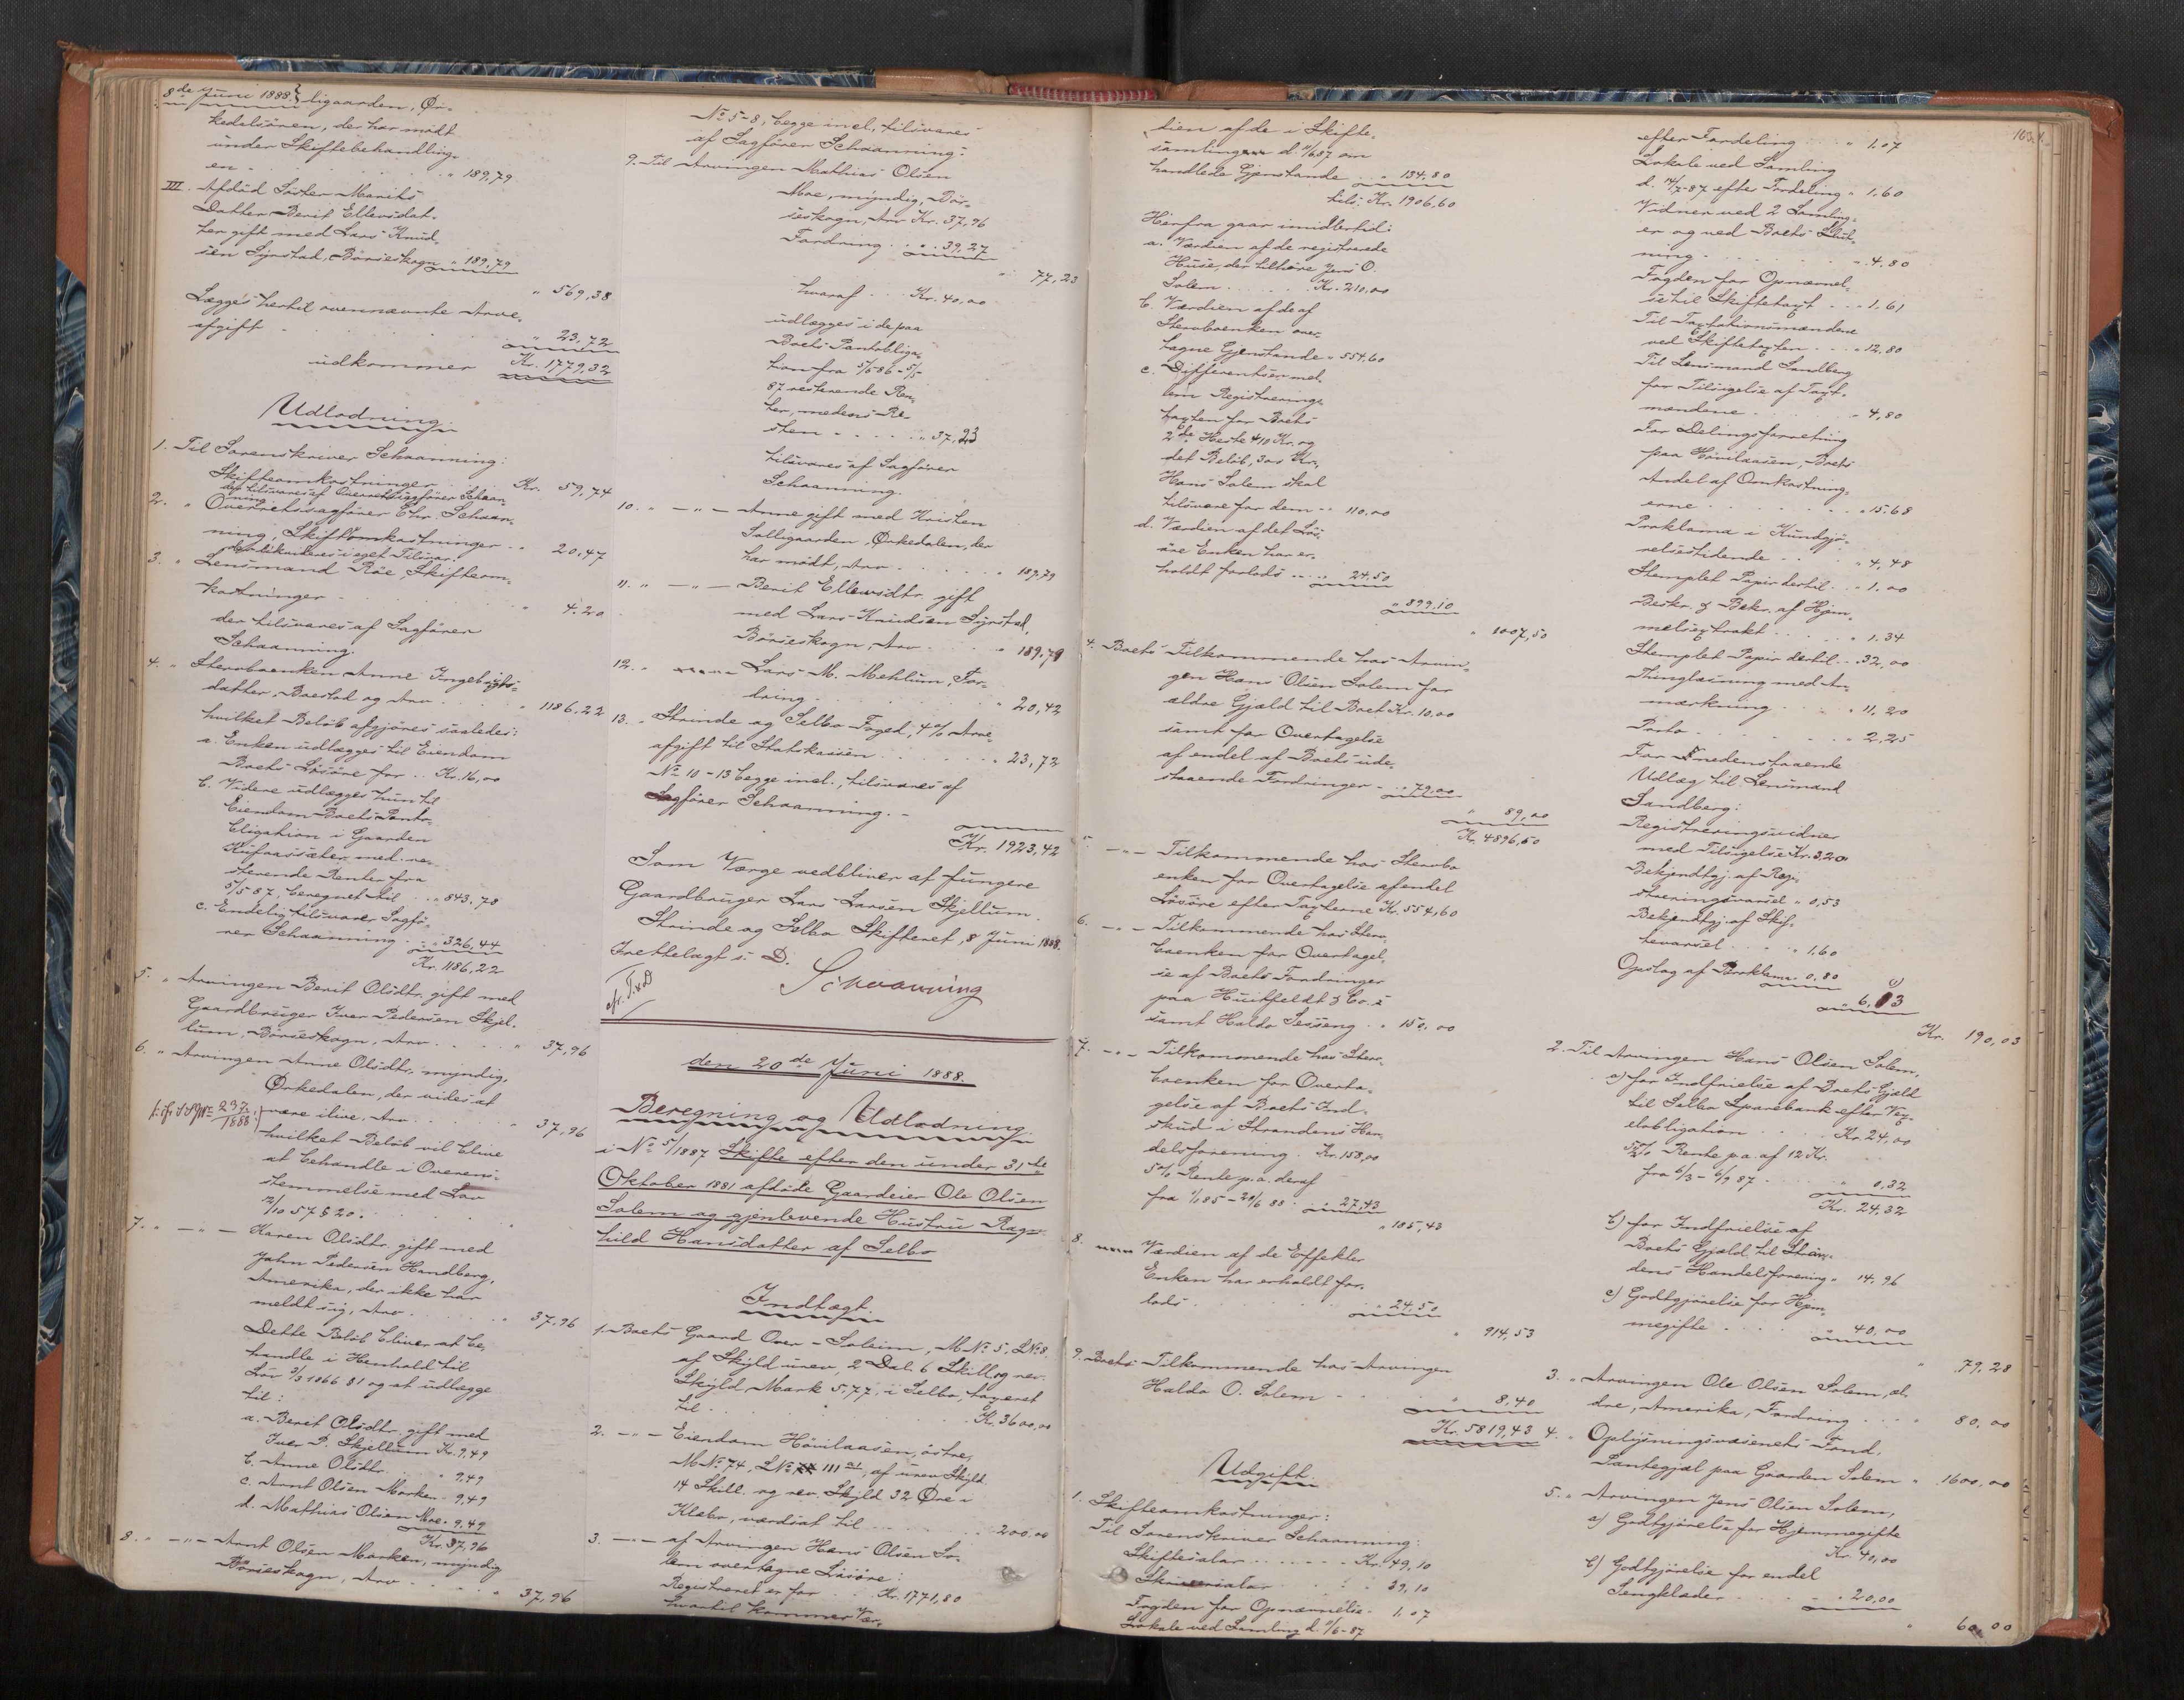 8de Juni 1888.
ligaarden, Ør-
kedalsøren, der har mødt
under Skiftebehandling-
en " 189,79
III. Afdød Søster Marits
Datter Berit Ellevsdat-
ter gift med Lars Knud-
sen Syrstad, Børseskogn " 189,79
" 569,38
Lægges hertil ovennævnte Arve-
afgift " 23,72
udkommer Kr. 1779,32
Udlodning.
1. Til Sorenskriver Schaanning:
Skifteomkostninger Kr. 59,74
der tilsvares af Overretssagfører Schaan-
ning.
2. " Overretssagfører Chr. Schaan-
ning, Skifteomkostninger " 20,47
der likvideres i eget Tilsvar.
3. " Lensmand Røe, Skifteom-
kostninger " 4.20
der tilsvares af Sagfører
Schaanning.
4. " Stervboenken Anne Ingebrigts-
datter, Boeslod og Arv " 1186,22
hvilket Beløb afgjøres saaledes:
a. Enken udlægges til Eiendom
Boets Løsøre for Kr. 16,00
b. Videre udlægges hun til
Eiendom Boets Panto-
bligation i Gaarden
med re-
sterende Renter fra
5/5 87, beregnet til " 843,78
c. Endelig tilsvarer Sagfø-
rer Schaanning " 326,44
Kr. 1186,22
5. " Arvingen Berit Olsdtr. gift med
Gaardbruger Iver Pedersen Skjel-
lum, Børseskogn, Arv " 37,96
6. " Arvingen Anne Olsdtr., myndig,
Ørkedalen, der vides at
være ilive, Arv " 37,96
237/1888.
hvilket Beløb vil blive
at behandle i Overens-
stemmelse med Lov
12/10 57 § 20.
7. " — " — Karen Olsdtr. gift med
John Pedersen Handberg,
Amerika, der ikke har
meldt sig, Arv " 37,96
Dette Beløb bliver at be-
handle i Henhold til
Lov 3/3 1866 § 1 og at udlægge
til:
a. Beret Olsdtr. gift med
Iver P. Skjellum Kr. 9,49
b. Anne Olsdtr. " 9,49
c. Arnt Olsen Morken " 9,49
d. Mathias Olsen Moe " 9,49
Kr. 37,96
8. " — " — Arnt Olsen Morken, myndig
Børseskogn, Arv " 37,96
No 5-8, begge incl., tilsvares
af Sagfører Schaanning.
9. Til Arvingen Mathias Olsen
Moe, myndig, Bør-
seskogn, Arv Kr. 37,96
Fordring " 39,27
" 77,23
hvoraf Kr. 40,00
udlægges i de paa
Boets Pantobliga-
tion fra 5/5 86 - 5/5
87 resterende Ren-
ter, medens Re-
sten " 37,23
tilsvares af Sagfører
Schaanning.
10. " — " — Anne gift med Kristen
Solligaarden, Ørkedalen, der
har mødt, Arv " 189,79
11. " — " — Berit Ellevsdtr. gift
med Lars Knudsen Syrstad,
Børseskogn, Arv " 189,79
12. " Lars M. Mehlum, For-
dring " 20,42
13. " Strinde og Selbo Foged, 4% Arve-
afgift til Statskassen " 23,72
No 10-13 begge incl., tilsvares af
Sagfører Schaanning. -
Kr. 1923,42
Som Værge vedbliver at fungere
Gaardbruger Lars Larsen Skjellum.
Strinde og Selbo Skifteret, 8 Juni 1888.
Irettelagt s. D.
Schaanning
den 20de Juni 1888.
Beregning og Udlodning
i No 5/1887 Skifte efter den under 31te
Oktober 1881 afdøde Gaardeier Ole Olsen
Solem og gjenlevende Hustru Ragn-
hild Hansdatter af Selbo
Indtægt.
1. Boets Gaard Over-Soleim, M No 5, L No 8.
af Skyld urev. 2 Dal. 6 Skill. og rev.
Skyld Mark 5,77, i Selbo, taxeret
til Kr. 3600,00
2. — " — Eiendom Høvilaasen, østre,
M No 74, L No 111 a1, af urev. Skyld
14 Skill. og rev. Skyld 32 Øre i
Klæbo, værdsat til 200,00
3. — " — af Arvingen Hans Olsen So-
lem overtagne Løsøre:
Registreret er for Kr. 1771,80
hvortil kommer Vær-
dien af de i Skifte-
samlingen d. 1/6 87 om
handlede Gjenstande " 134,80
tils. Kr. 1906,60
Herfra gaar imidlertid:
a. Værdien af de registrerede
Huse, der tilhøre Jens O.
Solem Kr. 210,00
b. Værdien af de af
Stervboenken over-
tagne Gjenstande " 554,60
c. Differentsen mel-
lem Registrerings-
taxten for Boets
2de Heste 410 Kr. og
det Beløb, 300 Kr.,
Hans Solem skal
tilsvare for dem " 110,00
d. Værdien af det Løs-
øre Enken har er-
holdt forlods " 24,50
" 899,10
" 1007,50
4. Boets Tilkommende hos Arvin-
gen Hans Olsen Solem for
ældre Gjæld til Boet Kr. 10,00
samt for Overtagelse
af endel af Boets ude-
staaende Fordringer " 79,00
" 89,00
Kr. 4896,50
5. — " — Tilkommende hos Stervbo
enken for Overtagelse af endel
Løsøre efter Taxterne Kr. 554,60
6. — " — Tilkommende hos Sterv-
boenken for Overtagel-
se af Boets Fordringer
paa Huitfeldt & Co.
samt Haldo Sesseng " 150,00
7. — " — Tilkommende hos Sterv-
boenken for Overta-
gelse af Boets Ind-
skud i Strandens Han-
delsforening Kr. 158,00
5% Rente p.a. deraf
fra 1/1 85 - 20/6 88 " 27,43
" 185,43
8. Værdien af de Effekter
Enken har erholdt for-
lods " 24,50
" 914,53
9. Boets Tilkommende hos Arvingen
Haldo O. Solem " 8,40
Kr. 5819,43
Udgift.
1. Skifteomkostninger:
Til Sorenskriver Schaanning:
Skiftesalær Kr. 49,10
Skriversalær " 39,10
Fogden for Opnævnelse " 1,07
Lokale ved Samling d. 1/6-87
163.
efter Fordeling " 1,07
Lokale ved Samling
d. 14/7-87 efter Fordeling " 1,60
Vidner ved 2 Samling-
er og ved Boets Slut-
ning " 4,80
Fogden for Opnævnel-
se til Skiftetaxt " 1,61
Til Taxtationsmændene
ved Skiftetaxten " 12,80
Til Lensmand Sandberg
for Tilsigelse af Taxt-
mændene " 4,80
For Delingsforretning
paa Høvilaasen, Boets
Andel af Omkostning-
erne " 15,68
Proklama i Kundgjø-
relsestidende " 4,48
Stemplet Papir dertil " 1,00
Beskr. & Bekr. af Hjem-
melsextrakt " 1,34
Stemplet Papir dertil " 32,00
Thinglæsning med An-
mærkning " 11,20
Porto " 2,25
For nedenstaaende
Udlæg til Lensmand
Sandberg:
Registreringsvidner
med Tilsigelse Kr. 3,20
Bekjendtgj. af Regi-
streringsvarsel " 0,53
Bekjendtgj. af Skif-
tevarsel " 1,60
Opslag af Proklama " 0,80
" 6,13
Kr. 190,03
2. Til Arvingen Hans Olsen Solem,
a) for Indfrielse af Boets Gjæld
til Selbo Sparebank efter Vex-
elobligation Kr. 24,00
Rente p.a. af 12 Kr.
fra 6/3 - 6/9 87 " 0,32
Kr. 24,32
b) for Indfrielse af
Boets Gjæld til Stran-
dens Handelsforening " 14,96
c) Godtgjørelse for Hjem-
megifte " 40,00
" 79,28
3. " Arvingen Ole Olsen Solem, æl-
dre, Amerika, Fordring " 80,00
4. " Oplysningsvæsenets Fond,
Pantegjæl paa Gaarden Solem " 1600,00
5. " Arvingen Jens Olsen Solem,
a) Godtgjørelse for Hjemmegifte
Kr. 40,00
b) Godtgjørelse for endel
Sengklæder " 20,00
" 60,00